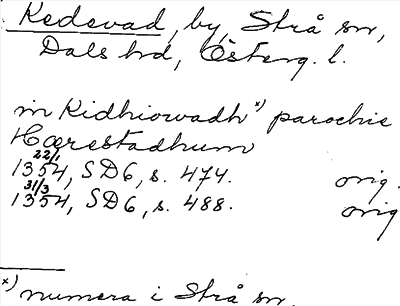 Kedevad, by, Strå sn,
Dals hd, Österg. l.
in Kidhiowadh x) parochie
Hærestadhum
22/1
1354, SD6, s. 474. orig.
31/3
1354, SD6, s. 488. orig
x) numera i Strå sn.